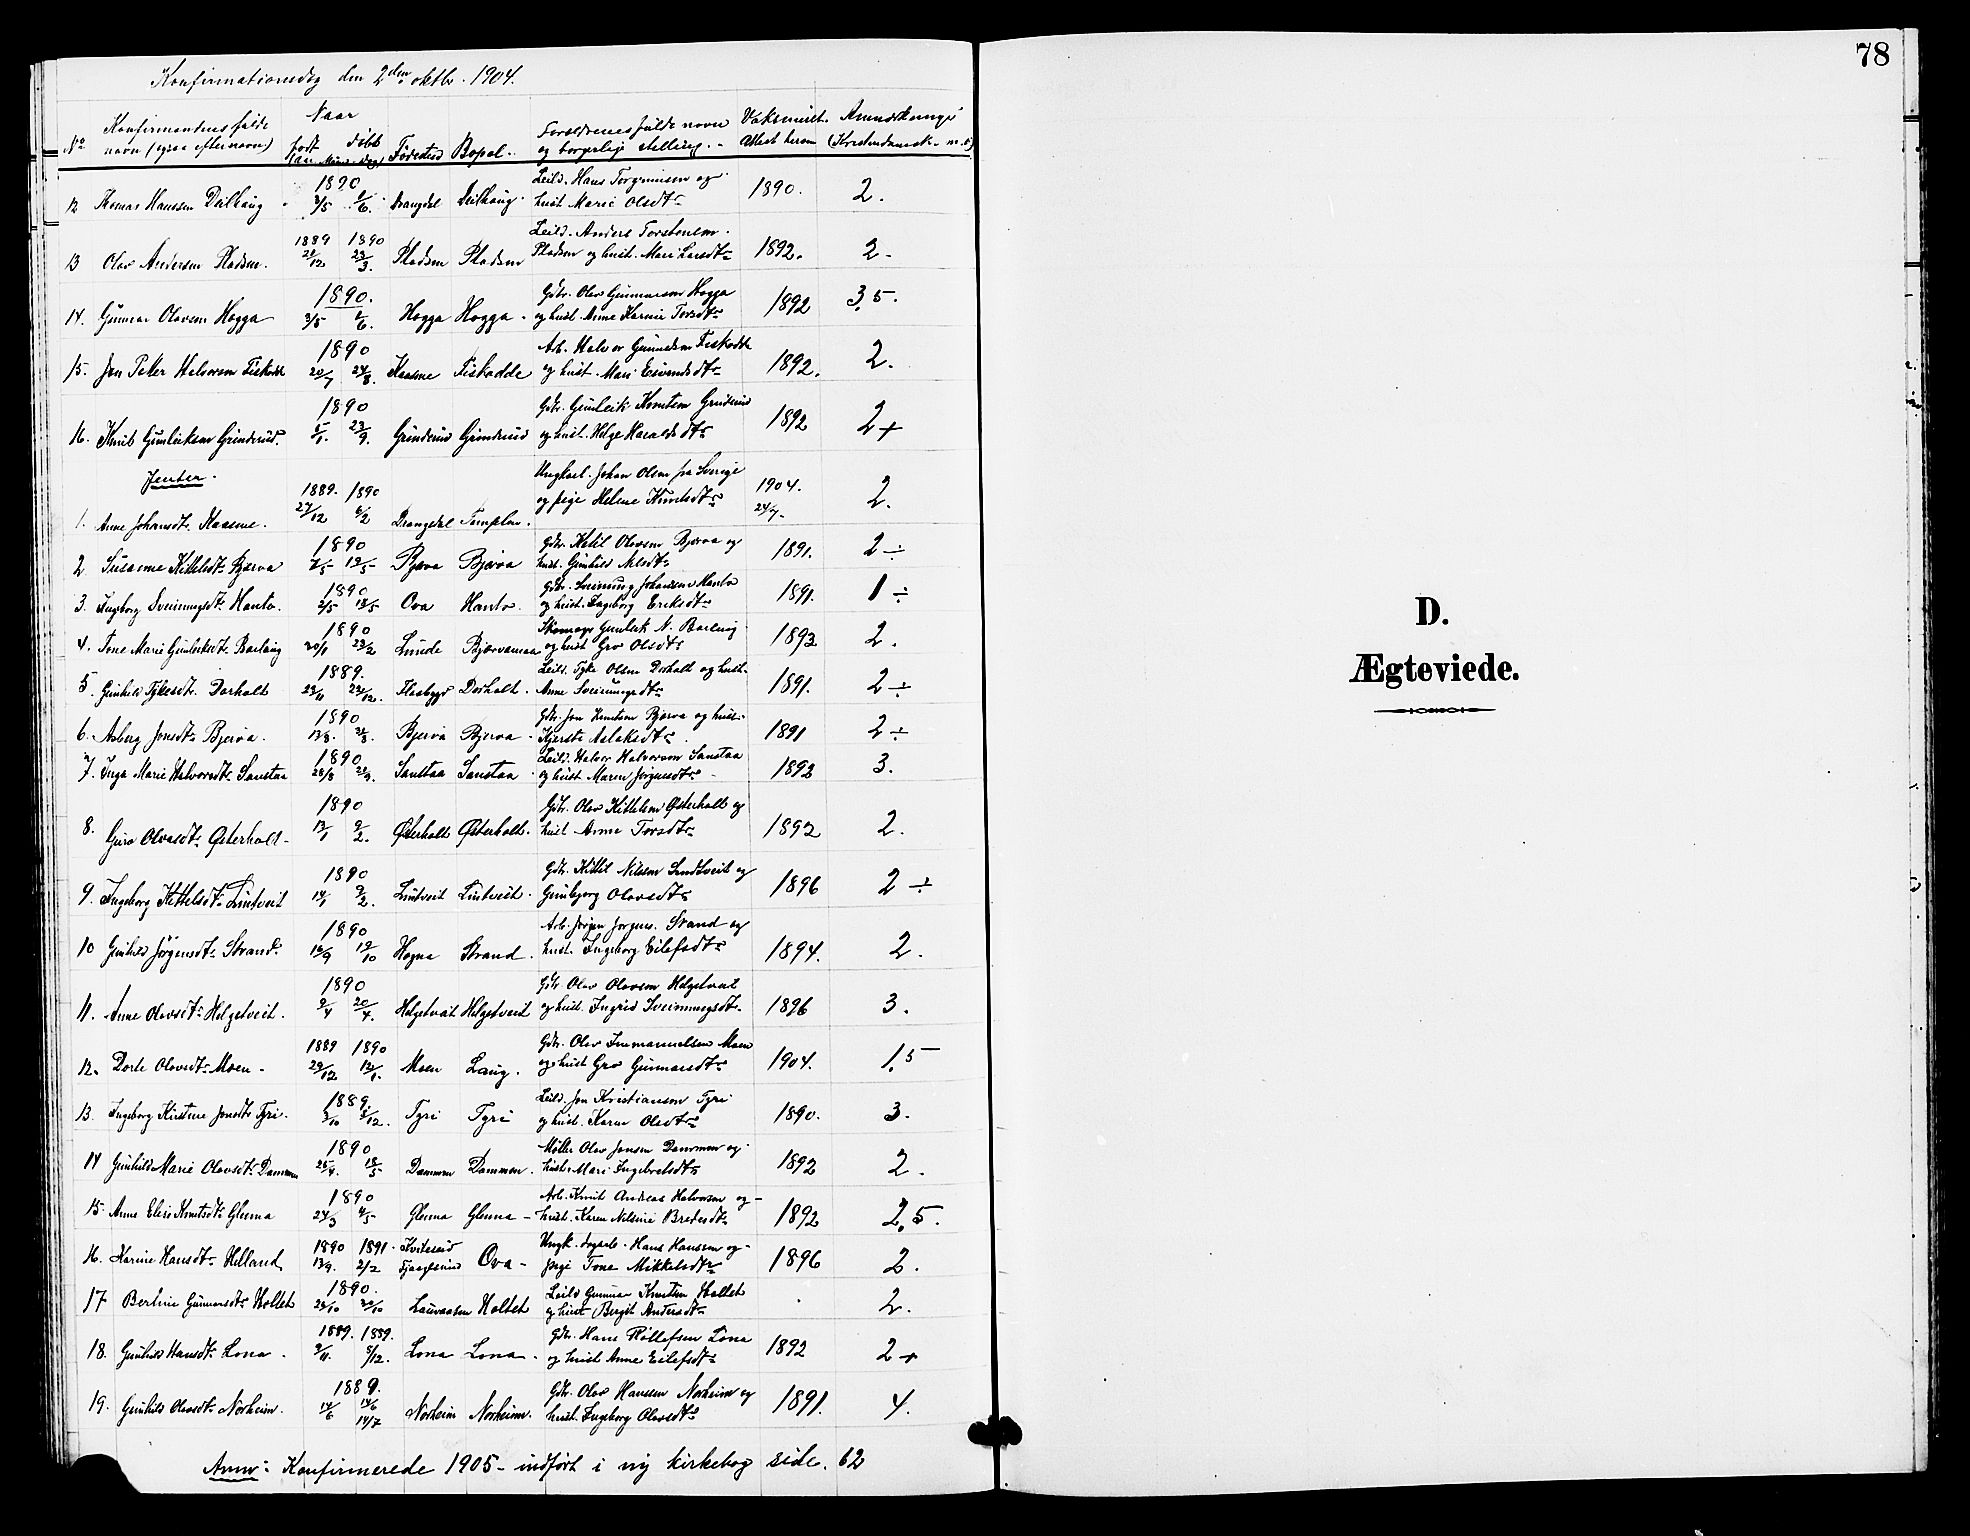 Konfirmationsdag den 2den oktbr. 1904.
No Konfirmandens fulde navn (ogsaa efternavn) Naar født døbt Fødested Bopæl. Forældrenes fulde navn og borgerlige stilling. Vaksineret. Attest herom Anmerkninger (Kristendomsk. m.v.)
12 Hansen Deilhaug 1890 2/5 1/6. Drangdal Deilhaug. Leil. Hans Torgrimsen og hust. Marie Olsdtr 1890. 2.
13 Olav Andersen Pladsen. 1889 28/12 1890 23/3. Pladsen Pladsen Leil. Anders Torstensen Pladsen og hust. Mari Larsdtr 1892. 2.
14. Gunnar Olavsen Hogga 1890. 3/5 1/6. Hogga Hogga. Gdbr. Olav Gunnarsen Hogga og hust. Anne Karine Torsdtr 1892 3,5.
15. Jon Peter Halvorsen Fiskodde 1890 20/7 24/8. Kaasene Fiskodde Arb. Halvor Gunnulsen Fiskodde og hust. Mari Eivindsdtr 1892. 2.
16. Knut Gunleiksen Grinderud 1890 23/9. Grinderud Grinderud Gdbr. Gunleik Knutsen Grinderud og hust. Helge Haraldsdtr 1892 2+
Jenter.
1. Anne Johansdtr Kaasene. 1889. 27/12 1890 6/2 Drangdal Tomplen. Ungkarl. Johan Olsen fra Sverige og pige Helene Knutsdtr 1904. 24/4. 2.
2 Susanne Kittelsdtr Bjerva 1890 Bjerva Bjerva Gdbr. Kittil Olavsen Bjerva og hust. Gunhild Nilsdtr 1891. 2 ÷
3. Ingeborg Sveinungsdtr Hanto. 1890 2/5 18/5 Ova Hanto. Gdbr. Sveinung Johansen Hanto og hust. Ingeborg Eriksdtr 1891. 1 ÷
4. Tone Marie Gunleiksdtr Barlaug 1890 20/1 23/2 Lunde Bjervamoen Skomager Gunleik N. Barlaug og hust Gro Olsdtr 1893 2.
5. Gunhild Tykesdtr. Dorholt 1889. 23/11 22/12. Flaabygd Dorholt. Leil. Tyke Olsen Dorholt og hust. Anne Sveinungsdtr 1891. 2 ÷
6. Asberg Jonsdtr Bjerva. 1890 Bjerva Bjerva. Gdbr. Jon Knutsen Bjerva og hust. Kjerste Aslaksdtr 1891 2 ÷
7. Inga Marie Halvorsdtr Sanstaa 1890 28/8 Sanstaa Sanstaa Leil. Halvor Halvorsen Sanstaa og hust Maren Jørgensdtr 1892 3.
8. Guro Olavsdtr Østerholt 1890 12/1 9/2. Østerholt Østerholt. Gdbr. Olav Kittelsen Østerholt og hust Anne Torsdtr 1892 2.
9. Ingeborg Kittelsdtr Lintveit 1890 14/1 9/2. Lintveit Lintveit. Gdbr. Kittil Nilsen Lindtveit og Gunbjørg Olavsdtr 1896 2 ÷
10 Gunhild Jørgensdtr Strand 1890 16/9 19/10 Hogna Strand. Arb. Jørgen Jørgens. Strand og hust. Ingeborg Eilefsdtr 1894. 2.
11. Anne Olavsdtr Helgetveit. 1890 9/4 20/4. Helgetveit Helgetveit Gdbr Olav Olavsen Helgetveit og hust. Ingrid Sveinungsdtr 1896 3.
12. Dorte Olavsdtr Moen. 1889 29/12 1890 12/1. Moen Laug. Gdbr. Olav Immanuelsen Moen og hust Gro Gunnarsdtr 1904. 1,5
13. Ingeborg Kirstine Jonsdtr Tyri. 1889. 2/10 8/12. Tyri Tyri Leil. Jon Kristiansen Tyri og hust. Karen Olsdtr 1890. 3.
14 Gunhild Marie Olavsdtr Dammen 1890 25/4. 18/5 Dammen Dammen. Møller Olav Jensen Dammen og hust. Mari Ingebretsdtr 1892 2.
15. Anne Elise Knutsdtr Glenna 1890 24/3 4/5 Glenna Glenna Arb. Knut Andreas Halvorsen og hust. Karen Nilsine Bredesdtr 1892 2,5.
16. Karine Hansdtr Helland 1890 13/9. 1891. 2/2 Kviteseid Fjaagesund Ova Ungk. dagarb. Hans Hansen og pige Tone Mikkelsdtr 1896 2.
17 Bertine Gunnarsdtr Holtet 1890. Lauvaasen Holtet Leil Gunnar Knutsen Holtet og hust Bergit Andersdtr 2.
18. Gunhild Hansdtr Lona. 1889. 9/11. 1889. 8/12. Lona Lona. Gdbr. Hans Rollefsen Lona og hust Anne Eilefsdtr 1892 2+
19. Gunhild Olavsdtr Norheim. 1889. 14/6 14/6 14/7 Norheim Norheim. Gdbr. Olav Hansen Norheim og hust. Ingeborg Olavsdtr 1891. 4.
Anm: Konfirmerede 1905 - indført i ny kirkebog side. 62
78
D.
Ægteviede.